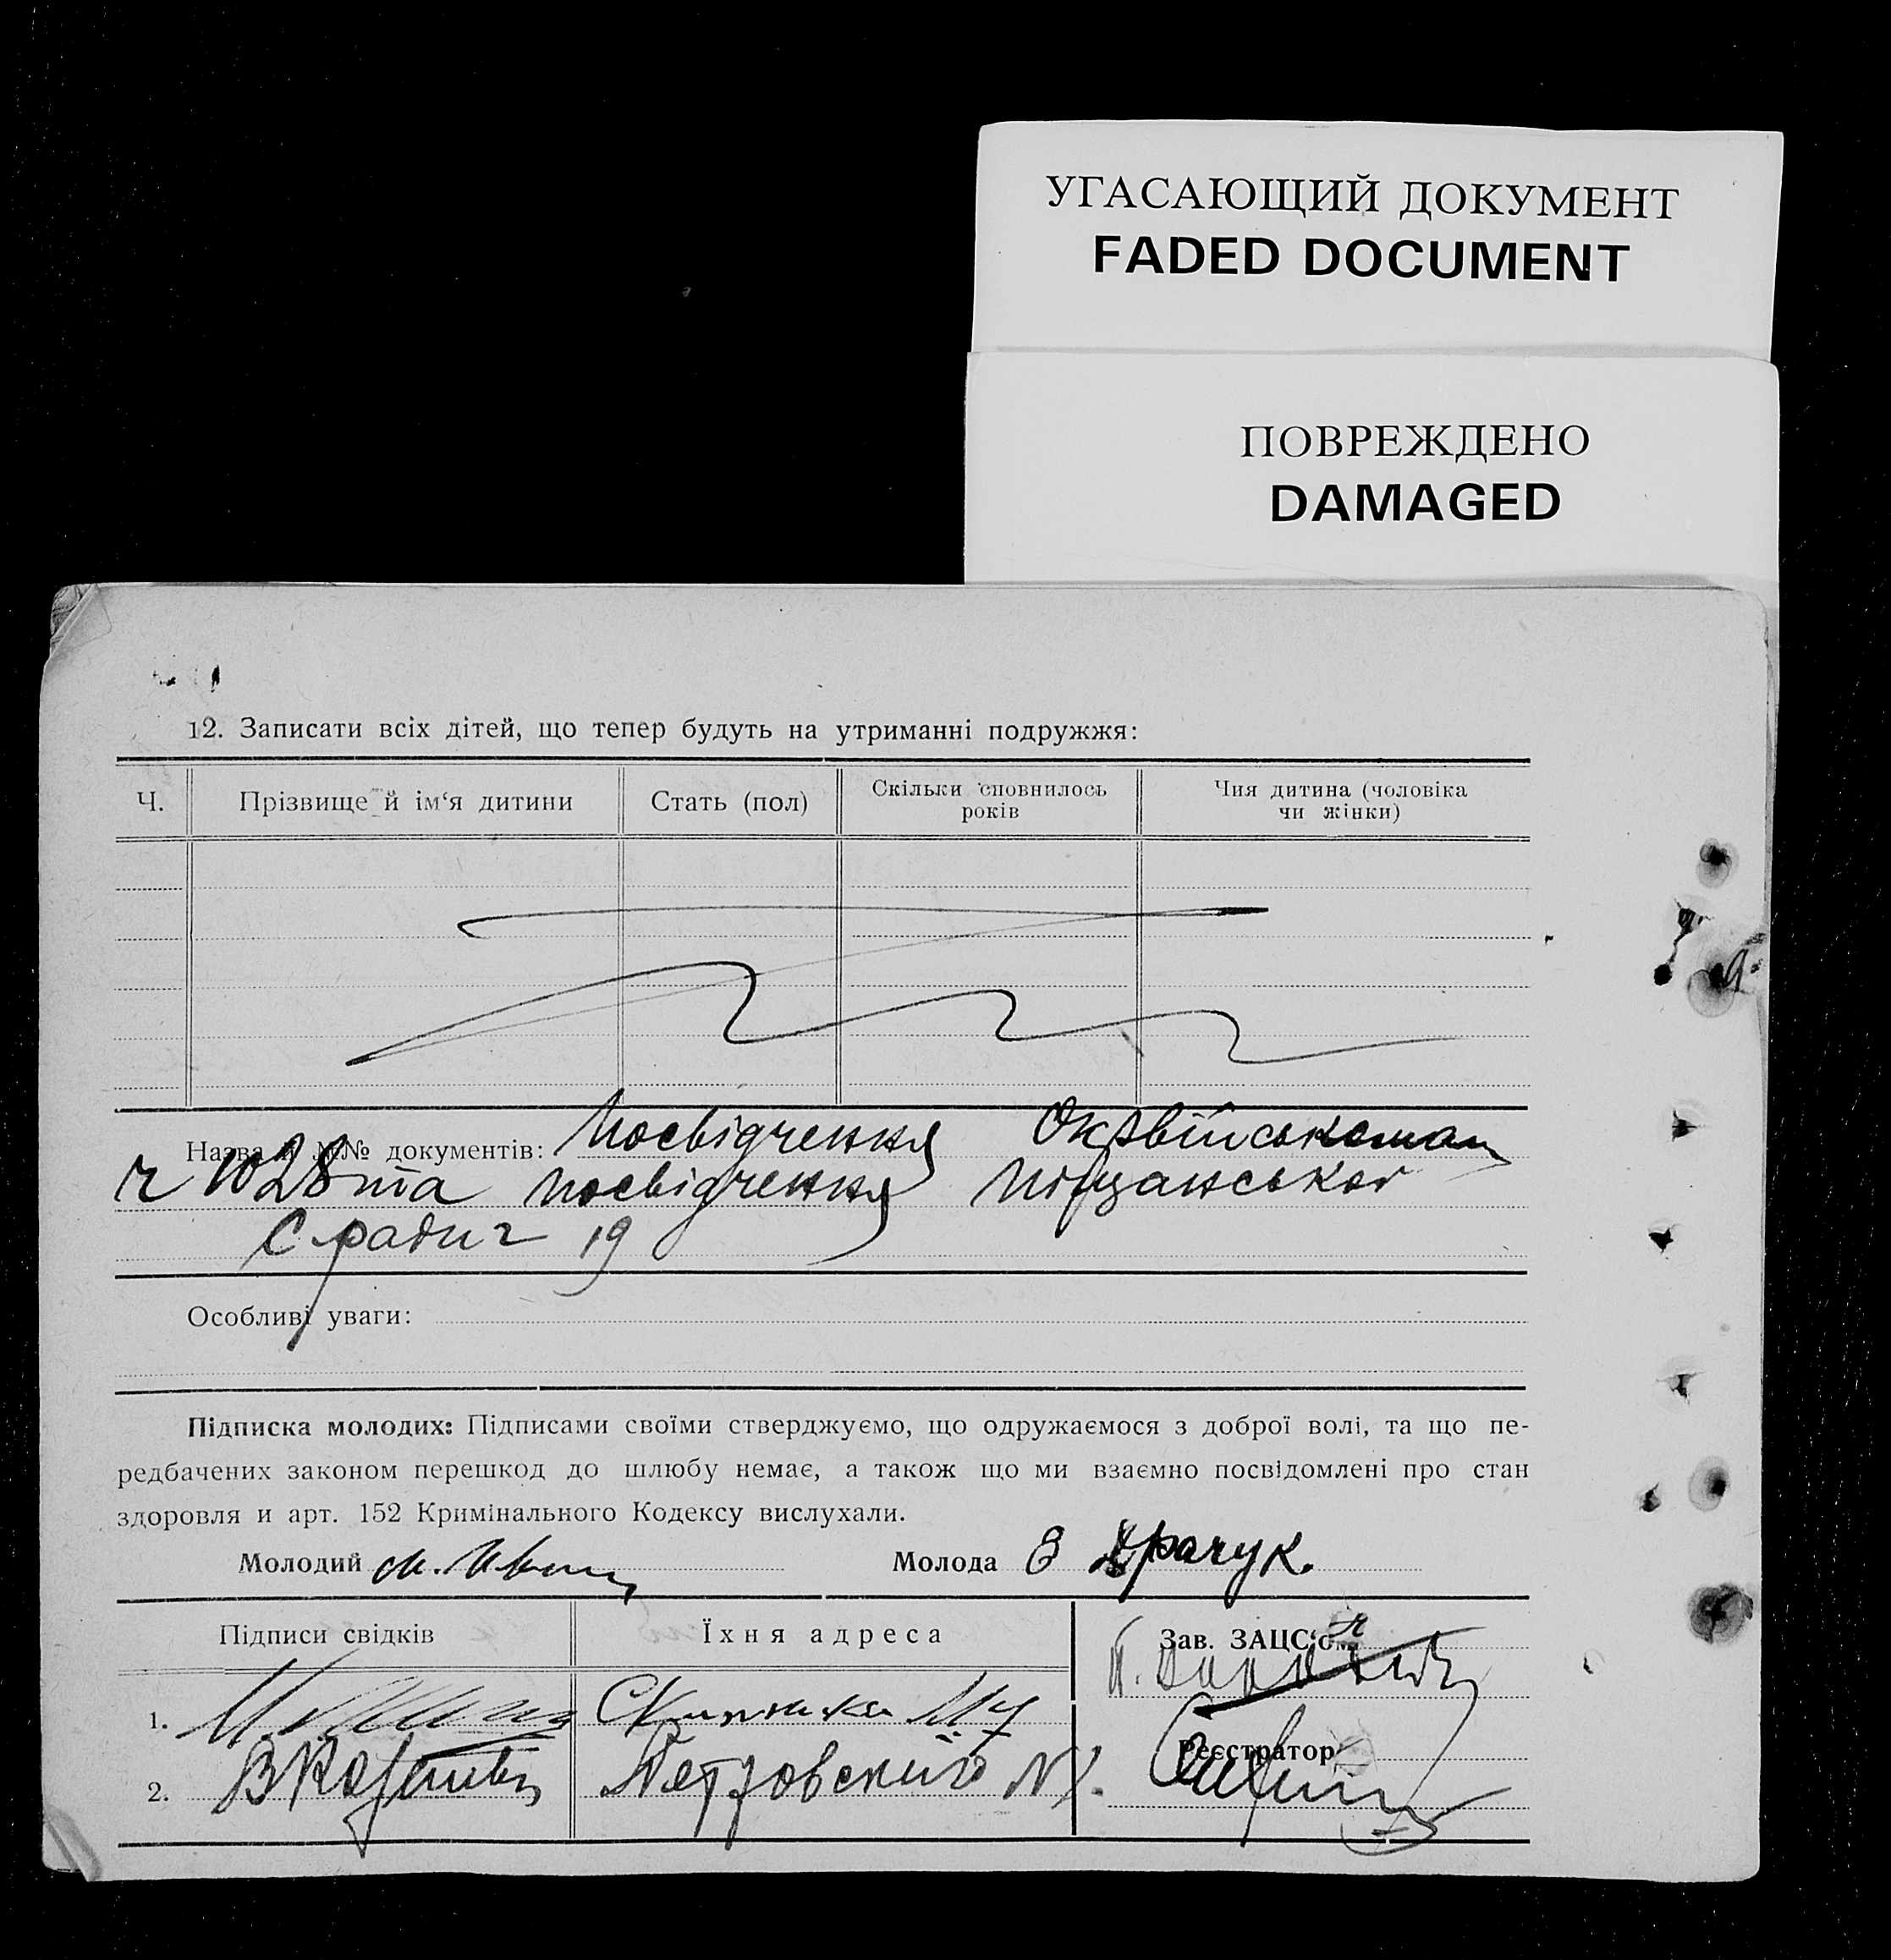 УГАСАЮЩИЙ ДОКУМЕНТ
FADED DOCUMENT
ПОВРЕЖДЕНО
DAMAGED
12. Записати всіх дітей, що тепер будуть на утриманні подружжя:
Ч. Прізвище й ім‘я дитини Стать (пол) Скільки сповнилось років Чия дитина (чоловіка чи жінки)
Назва й №№ документів: Посвідчення
ч 1028 та посвідчення Піщанської
С ради ч 19
Особливі уваги:
Підписка молодих: Підписами своїми стверджуємо, що одружаємося з доброї волі, та що пе-
редбачених законом перешкод до шлюбу немає, а також що ми взаємно посвідомлені про стан
здоровля и арт. 152 Кримінального Кодексу вислухали.
Молодий Молода
Підписи свідків Їхня адреса Зав. ЗАЦС‘ом
1.
Реєстратор
2. Петровского